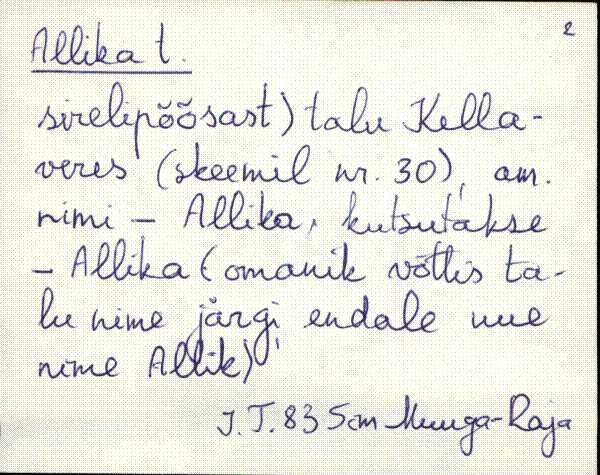 2
Allika t.
sirelipõõsast) talu Kella-
veres (skeemil nr. 30), am.
nimi – Allika, kutsutakse
– Allika (omanik võttis ta-
lu nime järgi endale uue
nime Allik)
J. T. 83 Sim Muuga-Roja